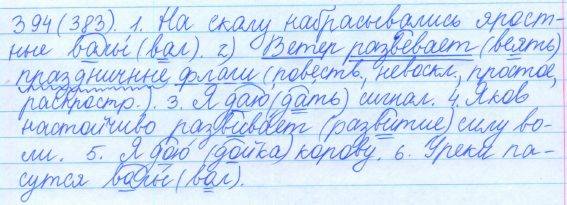 394(383). 1. На скалу набрасывались ярост-
ные валы (вал). 2) Ветер развевает (веять)
праздничные флаги (повеств., невоскл., простое,
распростр.). 3. Я даю (дать) сигнал. 4. Яков
настойчиво развивает (развитие) силу во-
ли. 5. Я дою (дойка) корову. 6. У реки па-
сутся волы (вол).